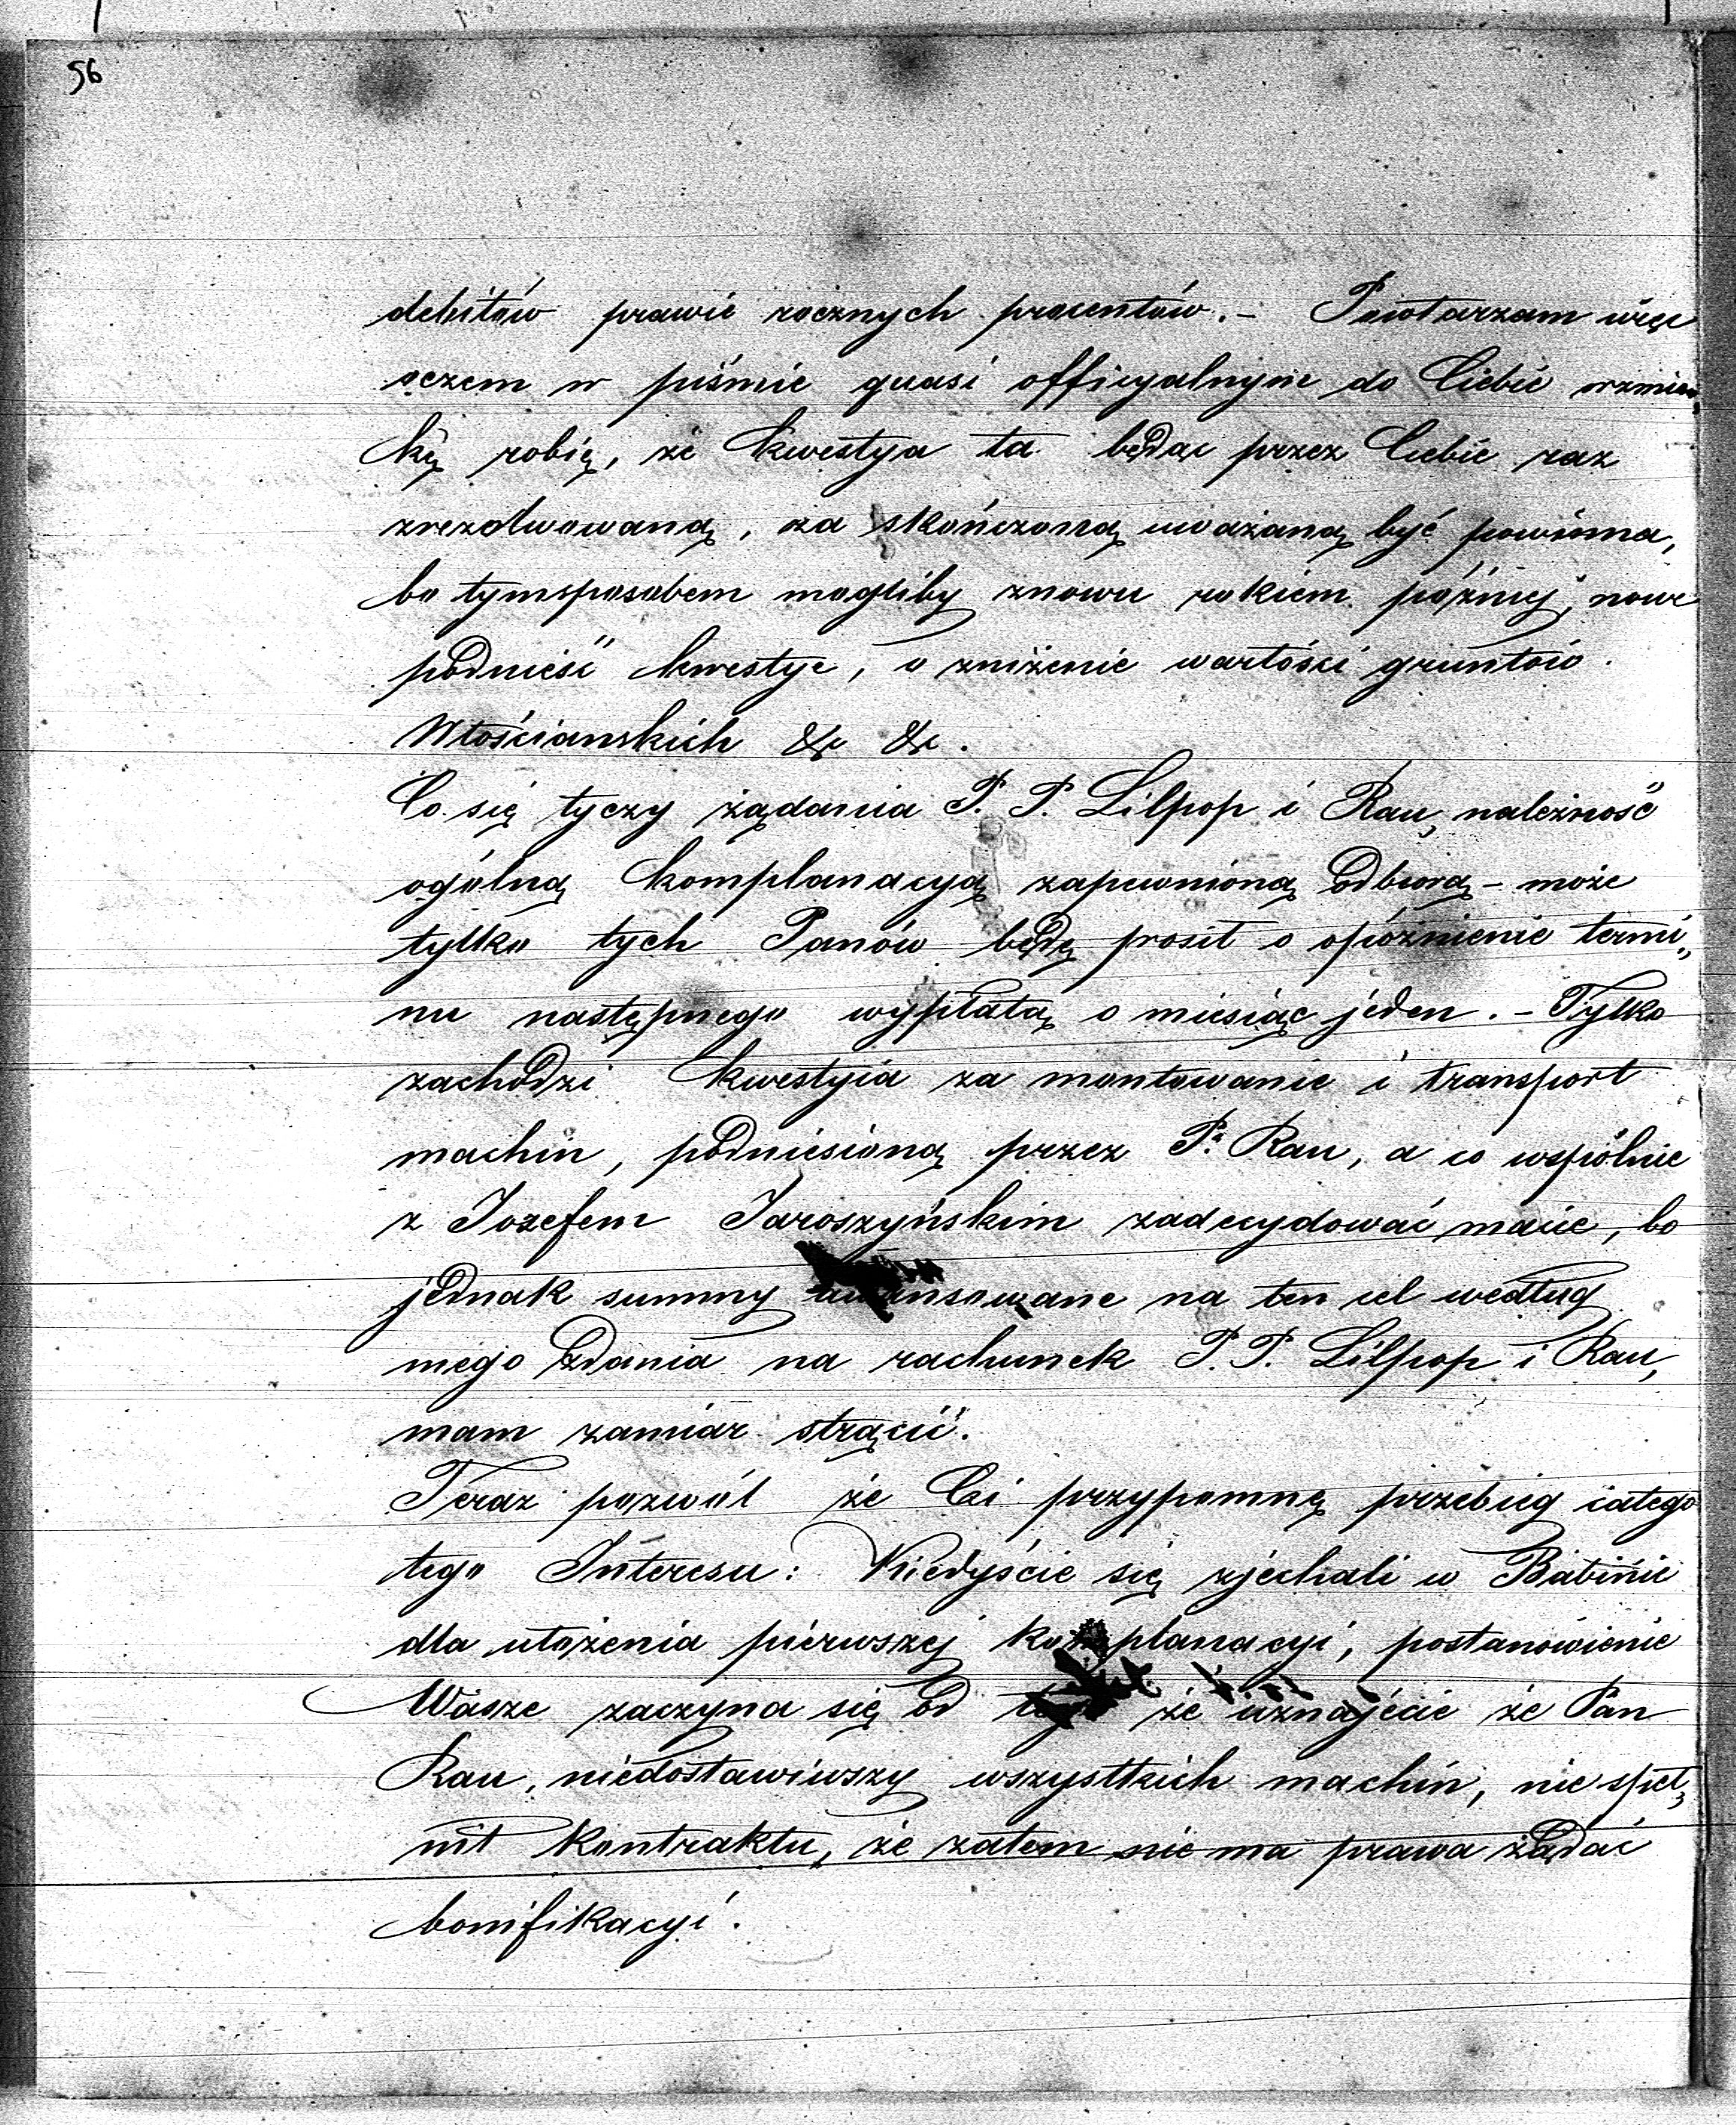 56
debitów prawie rocznych procentów. – Powtarzam więc
oczem w piśmie quasi officyalnym do Ciebie wzmian„
kę robię, że kwestya ta będąc przez Ciebie raz
zrezolwowaną, za skończoną uważaną być powinna,
bo tymsposobem mogliby znowu rokiem później, nowe
podnieść kwestye, o zniżenie wartości gruntów
Włościanskich &c &c.
Co się tyczy żądania P. P. Lilpop i Rau, należność
ogólną komplanacyą zapewnioną odbiorą – może
tylko tych Panów będę prosił o opóźnienie termi„
nu następnego wypłatą o miesiąc jeden. – Tylko
zachodzi kwestyia za montowanie i transport
machin, podniesioną przez P. Rau, a co wspólnie
z Jozefem Jaroszyńskim zadecydować macie, bo
jednak summy awansowane na ten cel według
mego zdania na rachunek P. P. Lilpop i Rau,
mam zamiar strącić.
Teraz pozwól że Ci przypomnę przebieg całego
tego Interesu: Kiedyście się zjechali w Babinie
dla ułożenia pierwszej komplanacyi, postanowienie
Wasze zaczyna się od że uznajecie że Pan
Rau, niedostawiwszy wszystkich machin, nie speł„
nił kontraktu, że zatem nie ma prawa żądać
bonifikacyi.